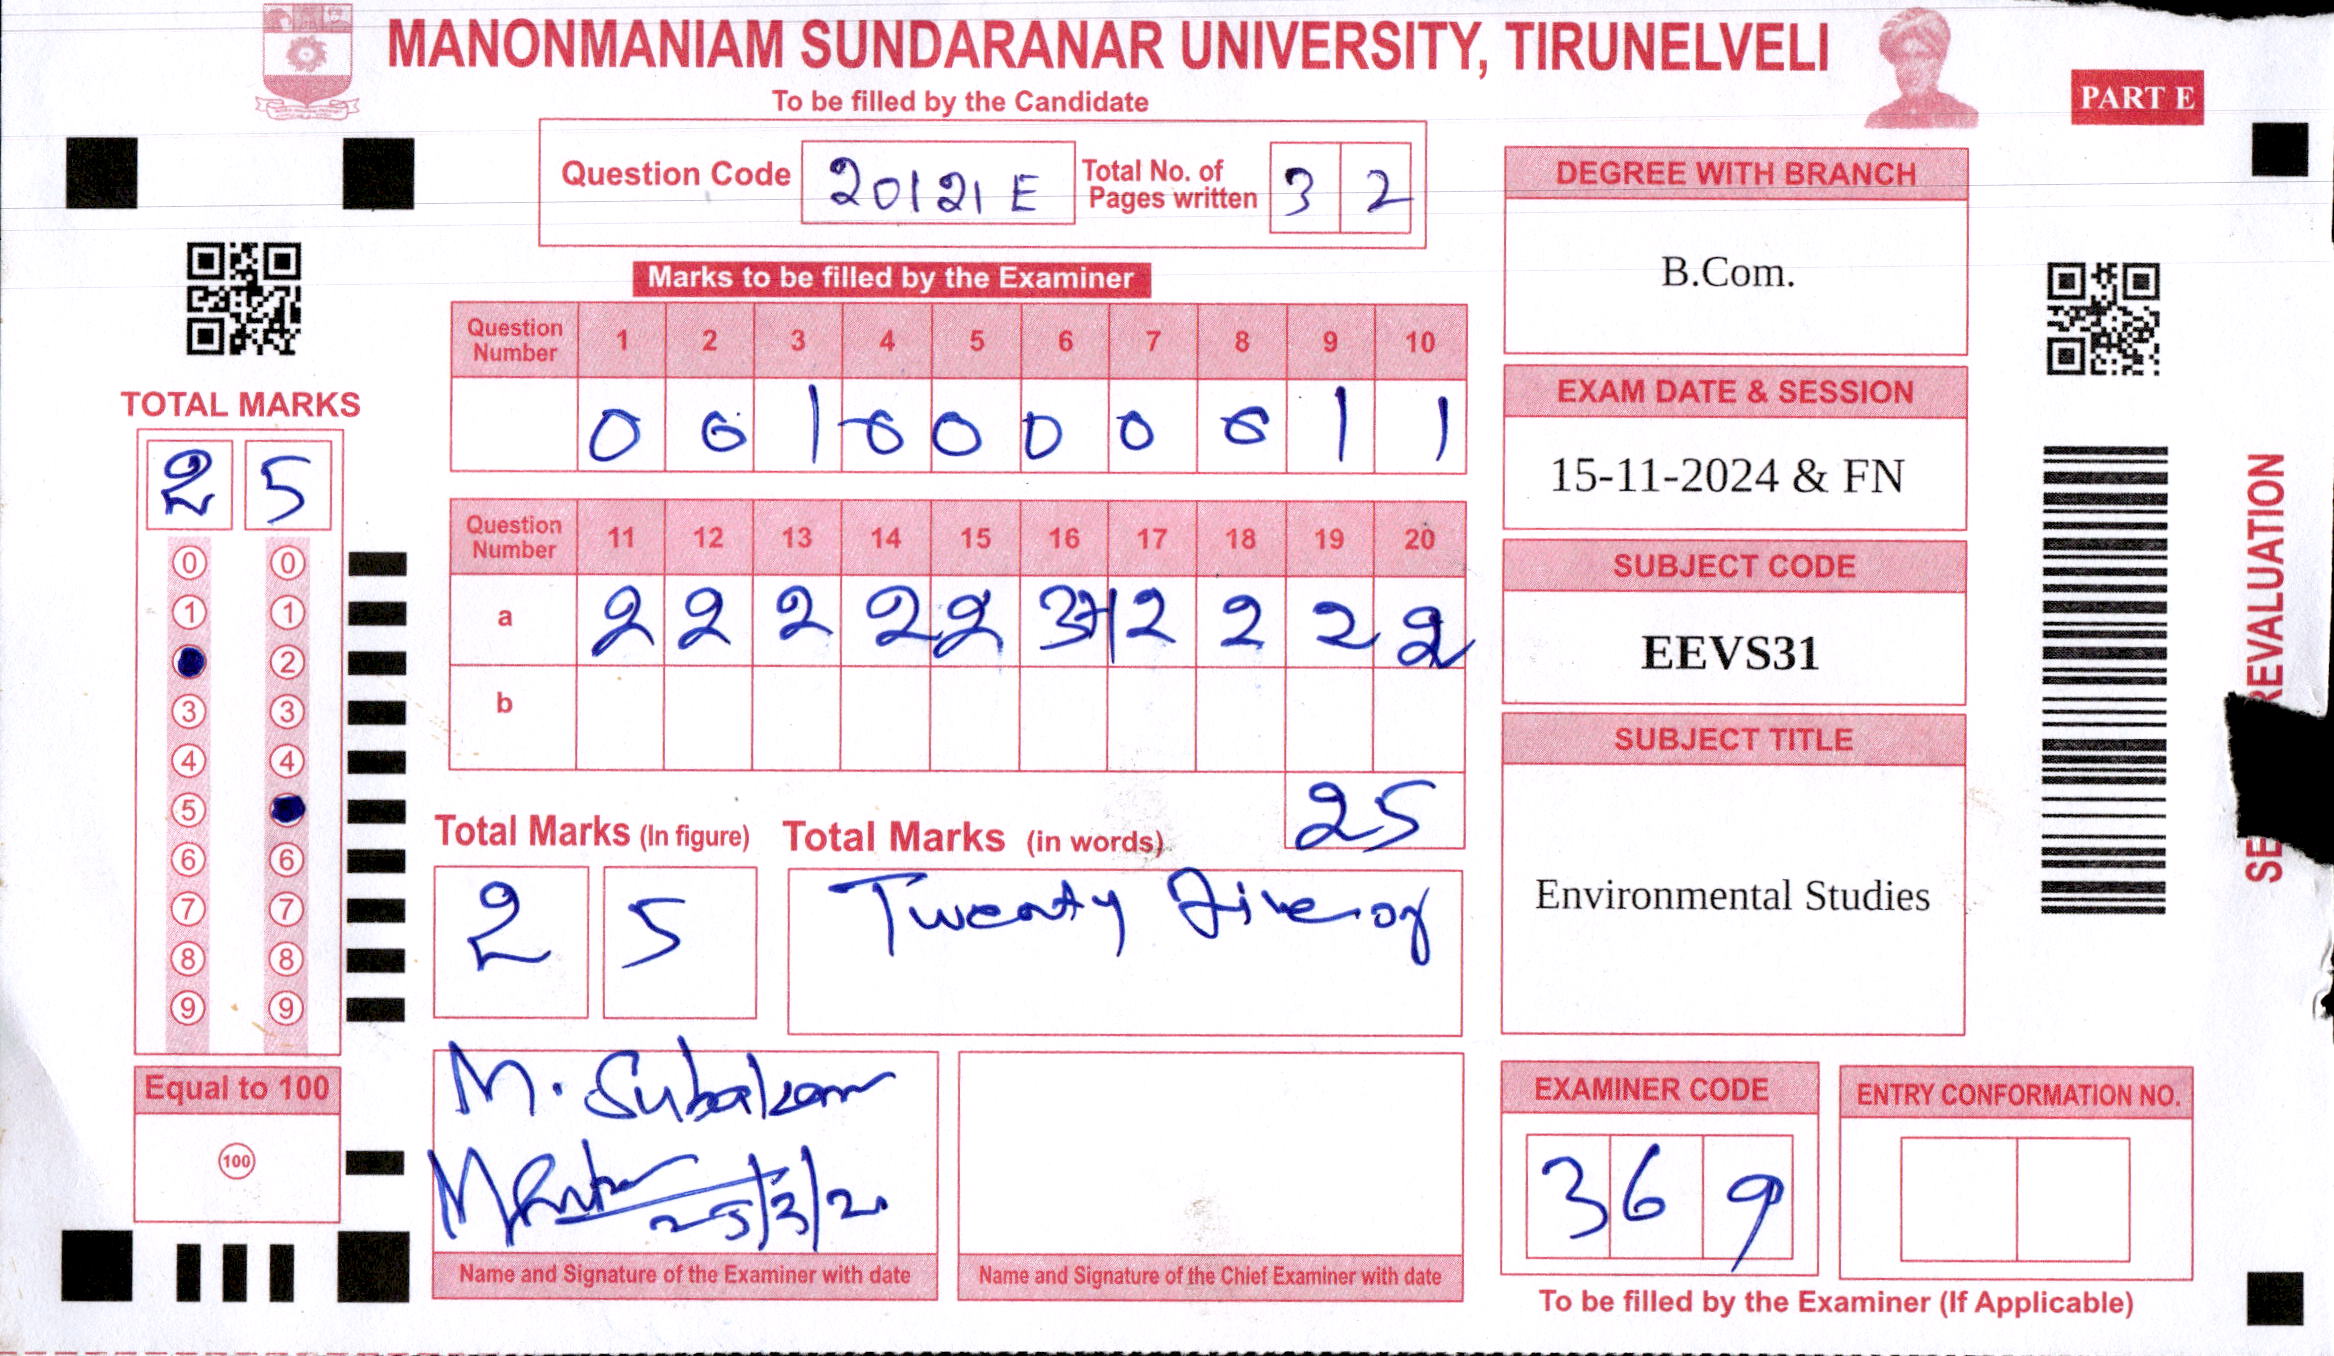 MANONMANIAM SUNDARANAR UNIVERSITY, TIRUNELVELI
To be filled by the Candidate
PART E
Question Code 20121 E Total No. of Pages written 3 2
Marks to be filled by the Examiner
Question Number 1 2 3 4 5 6 7 8 9 10
0 0 1 0 0 0 0 0 1 1
Question Number 11 12 13 14 15 16 17 18 19 20
a 2 2 2 2 2 3 2 2 2 2
b
25
Total Marks (In figure) Total Marks (in words)
2 5 Twenty Five
M.
25/3/2
Name and Signature of the Examiner with date
Name and Signature of the Chief Examiner with date
TOTAL MARKS
2 5
0 0
1 1
2
3 3
4 4
5
6 6
7 7
8 8
9 9
Equal to 100
100
DEGREE WITH BRANCH
B.Com.
EXAM DATE & SESSION
15-11-2024 & FN
SUBJECT CODE
EEVS31
SUBJECT TITLE
Environmental Studies
EXAMINER CODE
3 6 9
ENTRY CONFORMATION NO.
To be filled by the Examiner (If Applicable)
REVALUATION